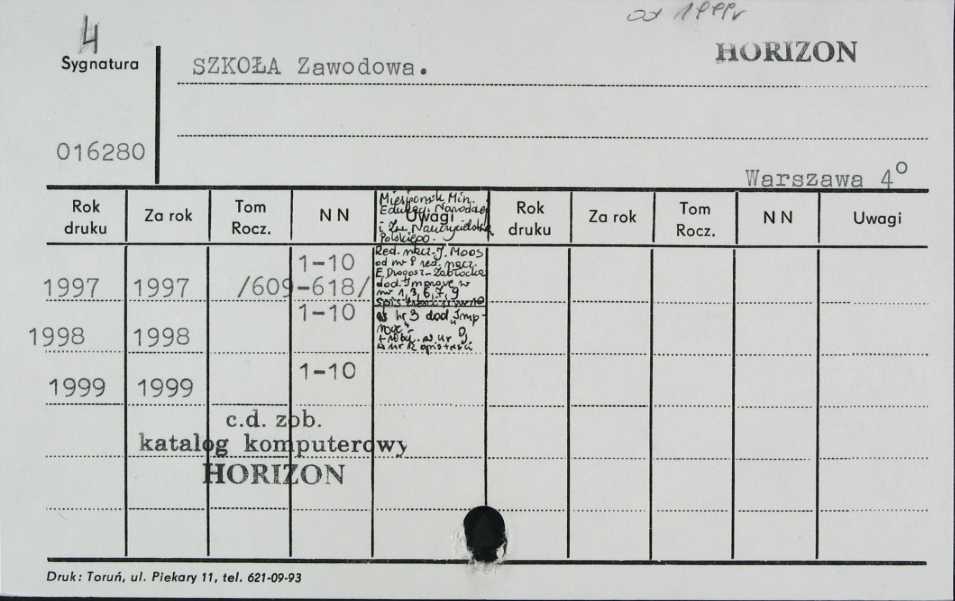 4
od 1999r
HORIZON
Sygnatura
SZKOŁA Zawodowa.
016280
Warszawa 4°
Rok druku
Za rok
Tom Rocz.
N N
Uwagi
Rok druku
Za rok
Tom Rocz.
N N
Uwagi
Min.
Edukacji Narodowej
i Zw. Nauczycielstwa
Polskiego.
1997 1997 /609-618/ 1-10
Red. nacz. J. Moos
od nr 8 red. nacz.
dod. Improve w
nr 1, 3, 6, 7, 9
1998 1998 1-10
nr 3 dod. „Imp-
1999 1999 1-10
c.d. zob.
katalog komputerowy
HORIZON
Druk: Toruń, ul. Piekary 11, tel. 621-09-93